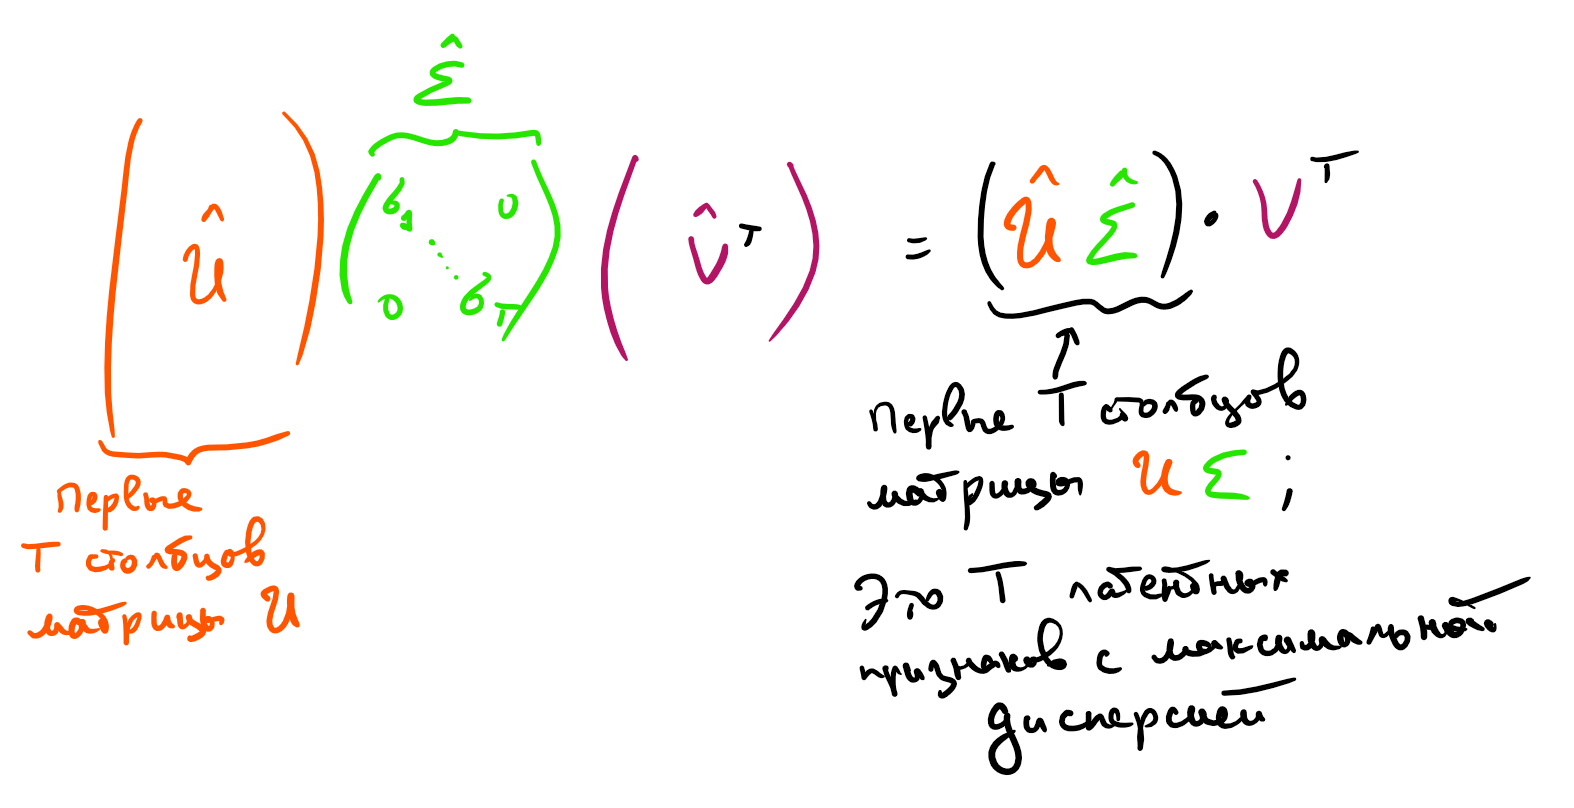 Σ̂
( Û ) ( σ₁ 0 ⋱ 0 σ_T ) ( V̂ᵀ ) = ( Û Σ̂ ) · Vᵀ
первые
T столбцов
матрицы U
первые T столбцов
матрицы U Σ ;
Это T латентных
признаков с максимальной
дисперсией